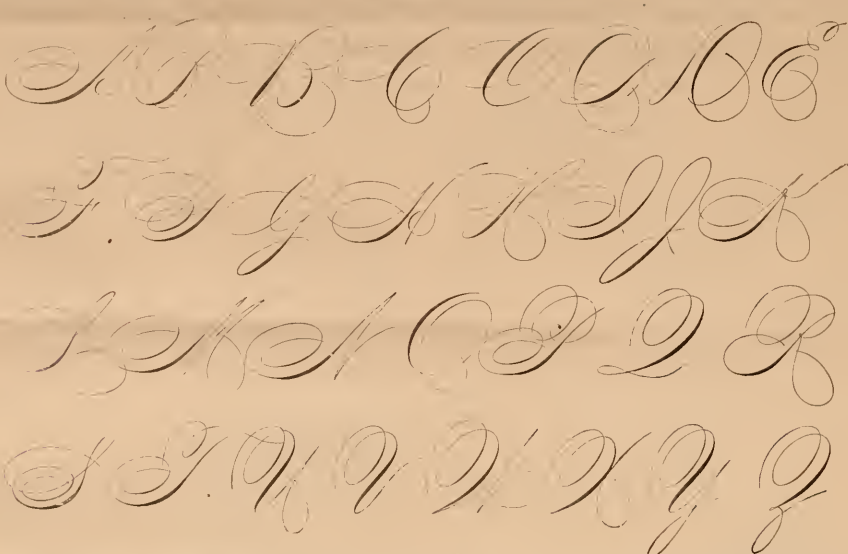 A A B C C D D E
F F G H H I J K
L M N O P Q R
S T U V W X Y Z